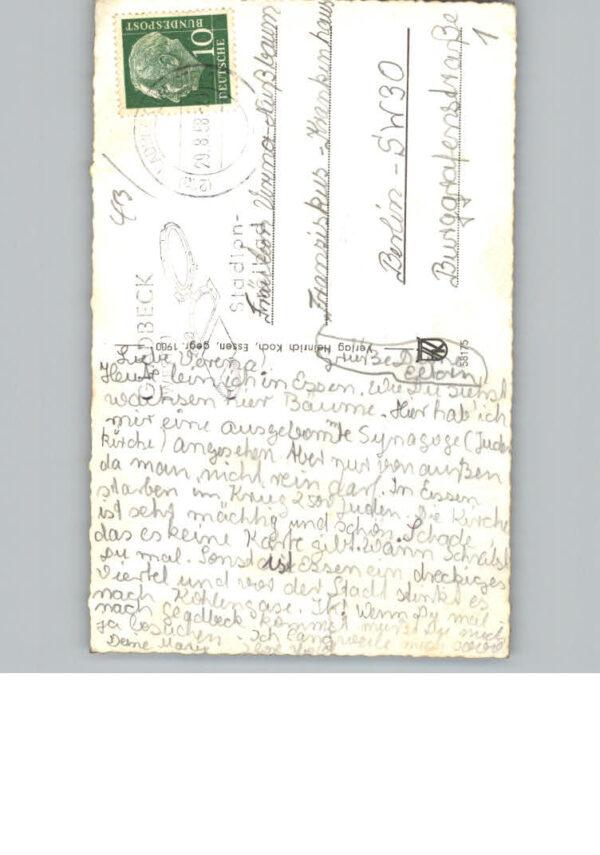 DEUTSCHE
BUNDESPOST
10
29.8.58
43/
1
GLADBECK
Stadion-
Freibad
Fräulein Verena Nußbaum
"Franziskus-Krankenhaus
Berlin-SW30
Burggrafenstraße
Verlag Heinrich Koch, Essen, gegr. 1900
58175
Grüße Deine
Eltern
Liebe Verena!
Heute bin ich in Essen. Wie Du siehst
wachsen hier Bäume. Hier hab ich
mir eine ausgebomte Synagoge (Juden
kirche) angesehen. Aber nur von außen
da man nicht rein darf. In Essen
starben im Krieg 2500 Juden. Die Kirche
ist sehr mächtig und schön. Schade
das es keine Karte gibt. Wann schreibst
Du mal. Sonst ist Essen ein dreckiges
Viertel und vor der Stadt stinkt es
nach Kohlengase. Wenn Du mal
nach Gladbeck kommst mußt Du mich
ja besuchen. Ich langweile mich
Deine Marie